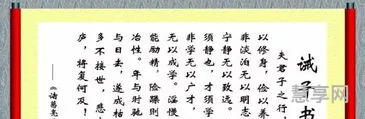 诫子书
夫君子之行，
以修身，俭以养
非淡泊无以明志
宁静无以致远。
须静也，才须学
非学无以广才，
无以成学。淫慢
能励精，险躁则
冶性。年与时驰
与日去，遂成枯
多不接世，悲
庐，将复何及！
——《诸葛亮
慧享网